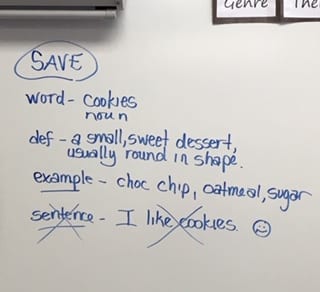 Genre
The
SAVE
word - cookies
noun
def - a small, sweet dessert,
usually round in shape.
example - choc chip, oatmeal, sugar
sentence - I like cookies.